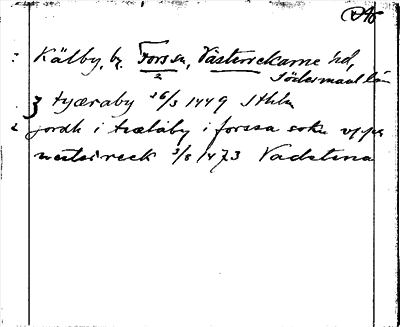 DMS
Kälby, by. Forssa, Västerrekarne hd,
2
Södermanl. län
tyæraby 26/3 1449 Sthlm
jordh i træläby i forssa sokn vppa
westeireek 3/8 1473 Vadstena